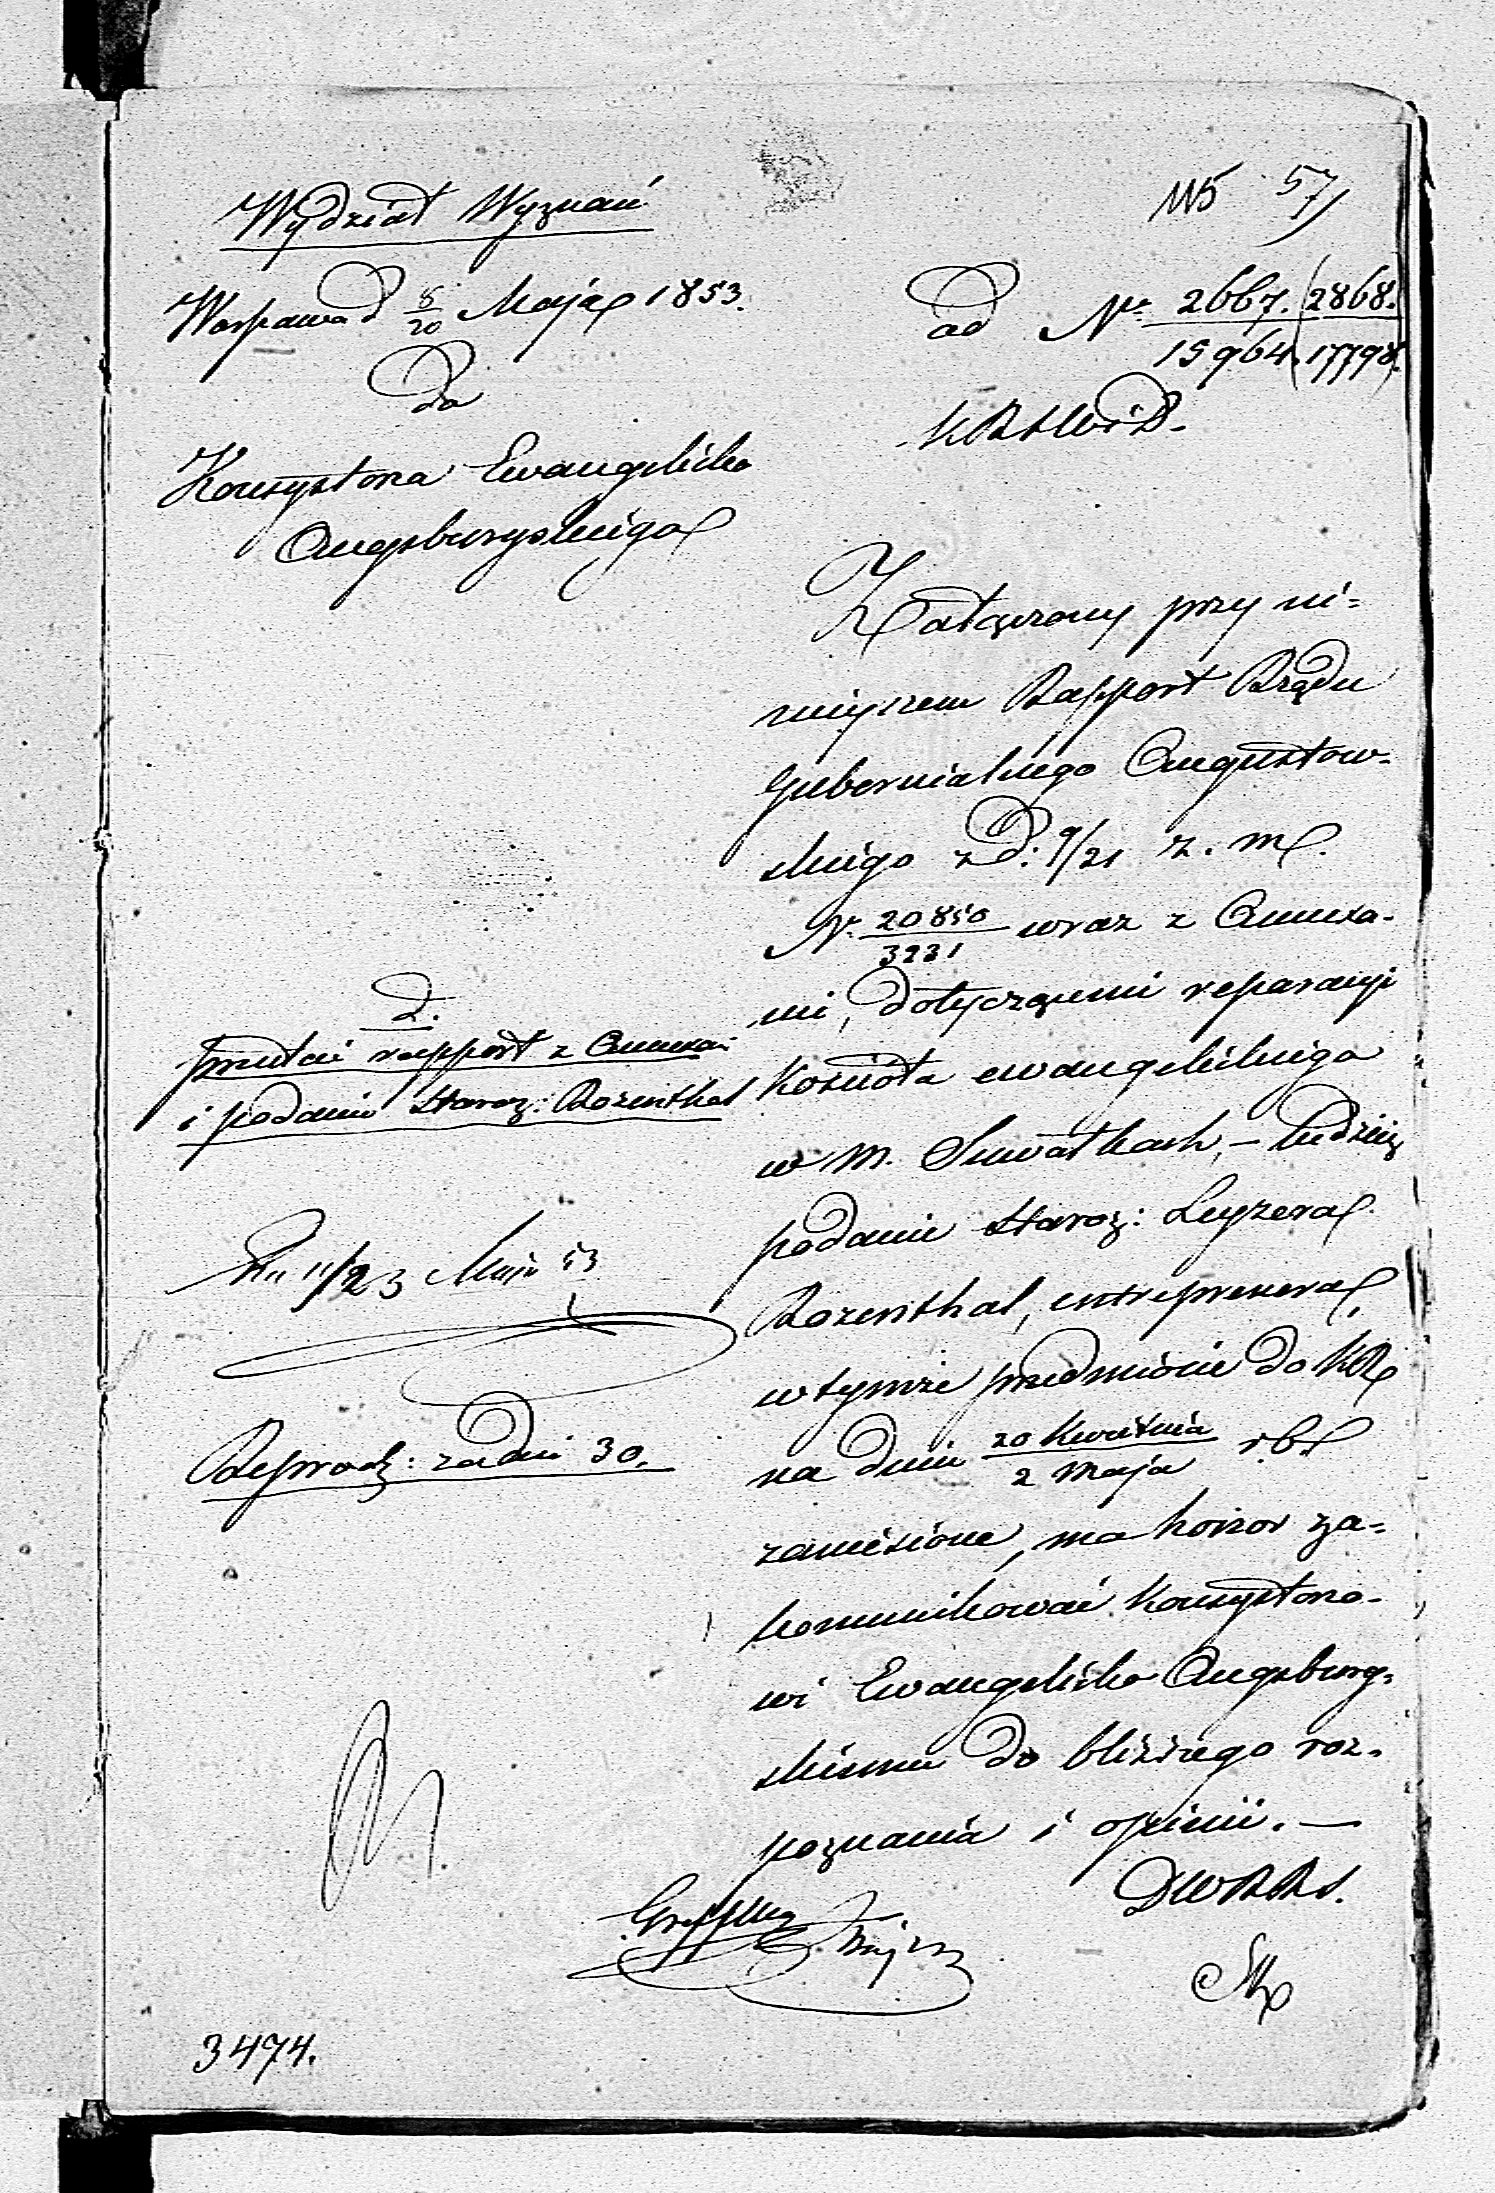 57
Wydział Wyznań
Warszawa d 8/20 Maja 1853.
ad Nr 2667. (2868.)
15964. (17798.)
Do
KRSWiD.
Konsystorza Ewangelicko
Augsburgskiego
Załączony przy ni=
niejszem Rapport Rządu
Gubernialnego Augustow-
skiego z d: 9/21 z. m.
Nr 20850/3231 wraz z Annexa-
mi, dotyczącemi reparacyi
Kościoła ewangelickiego
w M. Suwałkach, – tudzież
podanie Staroz: Leyzera
Rozenthal, entreprenera,
w tymże przedmiocie do KR
na dniu 20 Kwietnia/2 Maja r.b.
zaniesione, ma honor za=
komunikować Konsystorzo-
wi Ewangelicko Augsburg=
skiemu do bliższego roz-
poznania i opinii. –
DWRRS.
d.
rapport z Annexa:
i podanie Staroz: Rozenthal
11/23 Maja 53
Reprod: za dni 30.
3474.